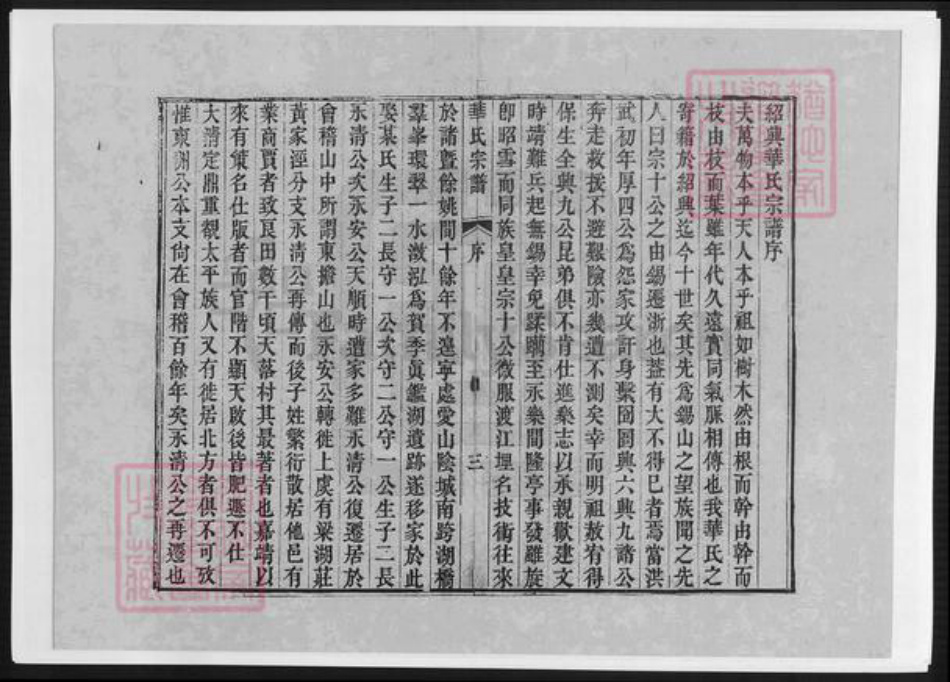 紹興華氏宗譜序
夫萬物本乎天人本乎祖如樹木然由根而幹由幹而
枝由枝而葉雖年代久遠實同氣脈相傳也我華氏之
寄籍於紹興迄今十世矣其先為錫山之望族聞之先
人曰宗十公之由錫遷浙也蓋有大不得已者焉當洪
武初年厚四公為怨家攻訐身繫囹圄興六興九諸公
奔走救援不避艱險亦幾遭不測矣幸而明祖赦宥得
保生全興九公昆弟俱不肯仕進樂志以承親歡建文
時靖難兵起無錫幸免蹂躪至永樂間隆亭事發雖旋
卽昭雪而同族皇皇宗十公微服渡江埋名技術往來
華氏宗譜 序 三
於諸暨餘姚間十餘年不遑寧處愛山陰城南跨湖橋
羣峯環翠一水瀲泓為賀季眞鑑湖遺跡遂移家於此
娶某氏生子二長守一公次守二公守一公生子二長
永清公次永安公天順時遭家多難永清公復遷居於
會稽山中所謂東擔山也永安公轉徙上虞有梁湖莊
黃家涇分支永清公再傳而後子姓繁衍散居他邑有
業商賈者致良田數千頃天落村其最著者也嘉靖以
來有策名仕版者而官階不顯天啟後皆肥遯不仕
大清定鼎重覩太平族人又有徙居北方者俱不可攷
惟東洲公本支尚在會稽百餘年矣永清公之再遷也